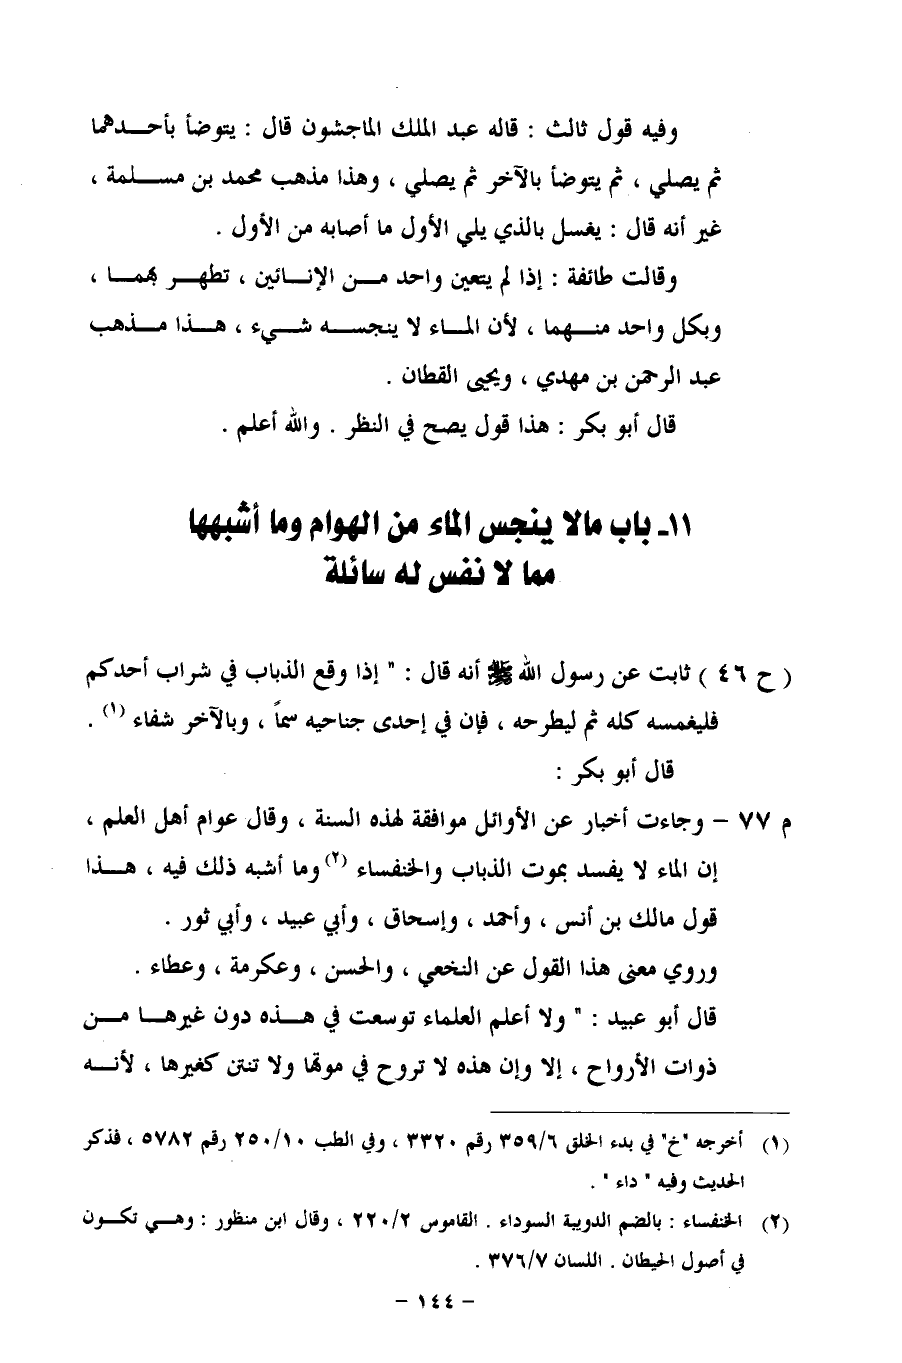 وفيه قول ثالث : قاله عبد الملك الماجشون قال : يتوضأ بأحـــدهما
ثم يصلي ، ثم يتوضأ بالآخر ثم يصلي ، وهذا مذهب محمد بن مســـلمة ،
غير أنه قال : يغسل بالذي يلي الأول ما أصابه من الأول .
وقالت طائفة : إذا لم يتعين واحد مـــن الإنـــائين ، تطهـــر بهمـــا ،
وبكل واحد منـــهما ، لأن المـــاء لا ينجســـه شـــيء ، هـــذا مـــذهب
عبد الرحمن بن مهدي ، ويحيى القطان .
قال أبو بكر : هذا قول يصح في النظر . والله أعلم .
١١ـ باب مالا ينجس الماء من الهوام وما أشبهها
مما لا نفس له سائلة
( ح ٤٦ ) ثابت عن رسول الله ﷺ أنه قال : " إذا وقع الذباب في شراب أحدكم
فليغمسه كله ثم ليطرحه ، فإن في إحدى جناحيه سماً ، وبالآخر شفاء (١) .
قال أبو بكر :
م ٧٧ – وجاءت أخبار عن الأوائل موافقة لهذه السنة ، وقال عوام أهل العلم ،
إن الماء لا يفسد بموت الذباب والخنفساء (٢) وما أشبه ذلك فيه ، هـــذا
قول مالك بن أنس ، وأحمد ، وإسحاق ، وأبي عبيد ، وأبي ثور .
وروي معنى هذا القول عن النخعي ، والحسن ، وعكرمة ، وعطاء .
قال أبو عبيد : " ولا أعلم العلماء توسعت في هـــذه دون غيرهـــا مـــن
ذوات الأرواح ، إلا وإن هذه لا تروح في موتها ولا تنتن كغيرها ، لأنـــه
(١) أخرجه "خ" في بدء الخلق ٣٥٩/٦ رقم ٣٣٢٠ ، وفي الطب ٢٥٠/١٠ رقم ٥٧٨٢ ، فذكر
الحديث وفيه " داء " .
(٢) الخنفساء : بالضم الدويبة السوداء . القاموس ٢٢٠/٢ ، وقال ابن منظور : وهـــي تكـــون
في أصول الحيطان . اللسان ٣٧٦/٧ .
– ١٤٤ –